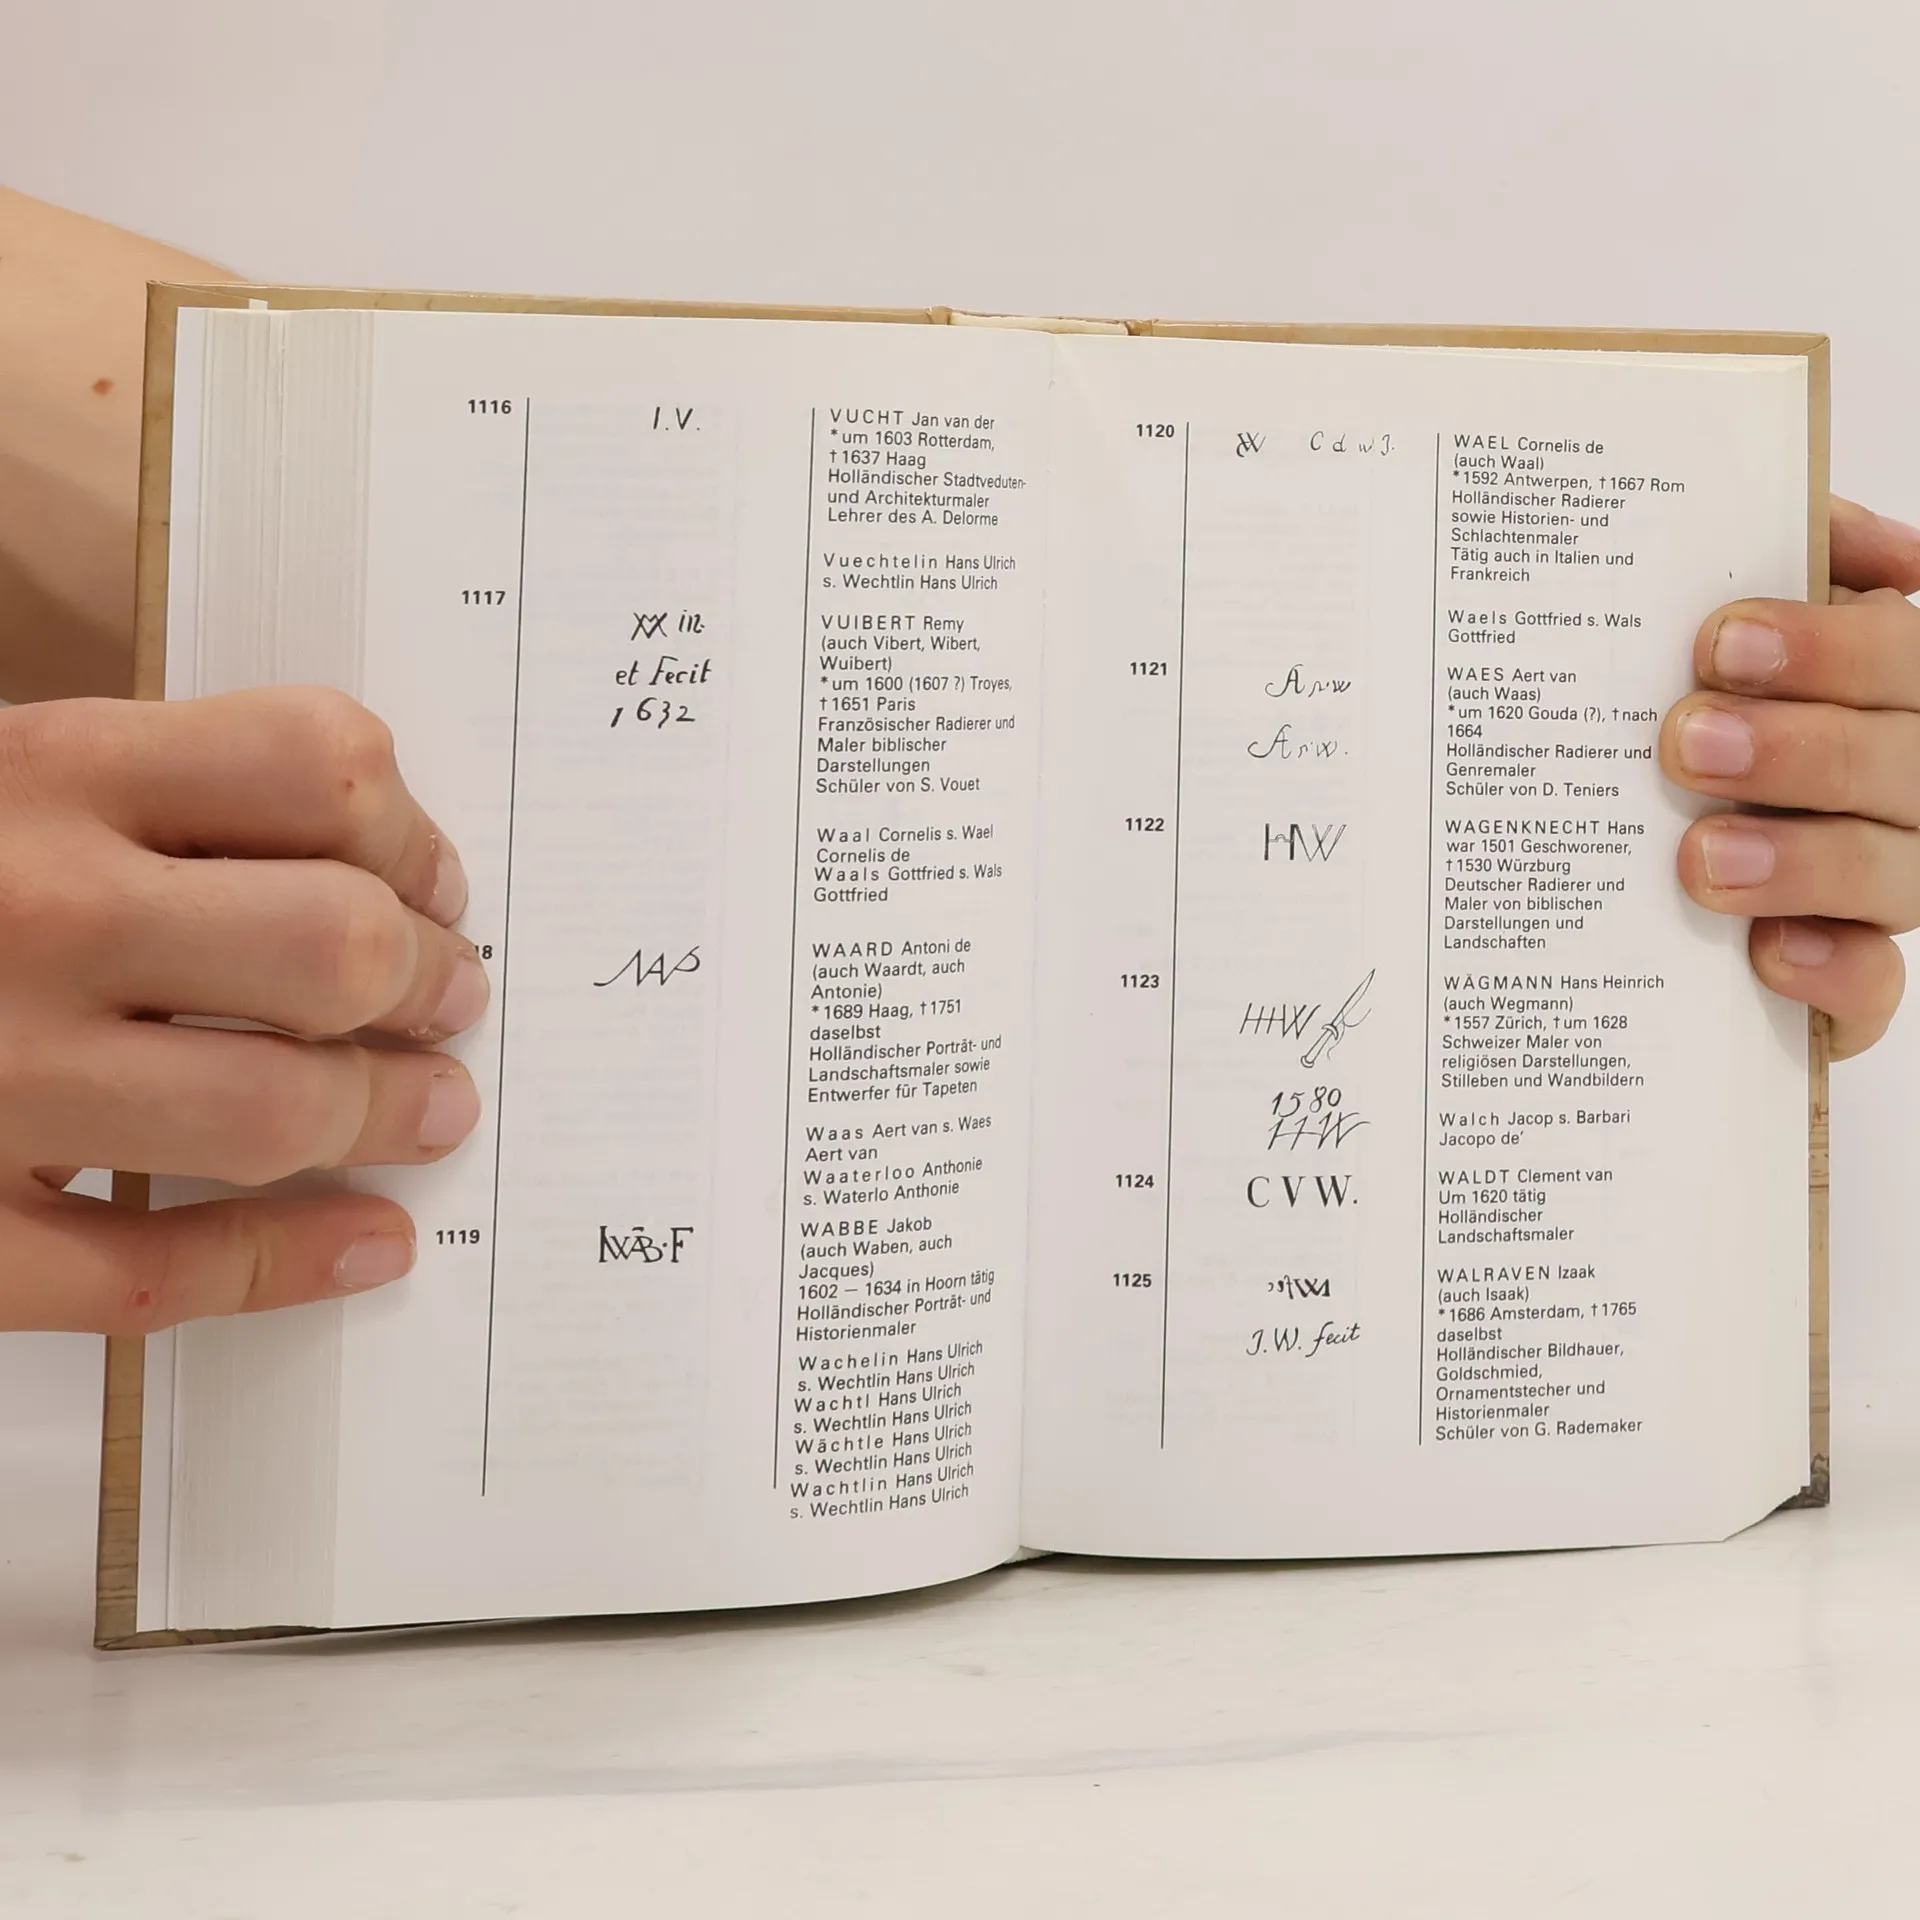 1116
I.V.
VUCHT Jan van der
* um 1603 Rotterdam,
† 1637 Haag
Holländischer Stadtveduten-
und Architekturmaler
Lehrer des A. Delorme
Vuechtelin Hans Ulrich
s. Wechtlin Hans Ulrich
1117
in
et Fecit
1632
VUIBERT Remy
(auch Vibert, Wibert,
Wuibert)
* um 1600 (1607 ?) Troyes,
† 1651 Paris
Französischer Radierer und
Maler biblischer
Darstellungen
Schüler von S. Vouet
Waal Cornelis s. Wael
Cornelis de
Waals Gottfried s. Wals
Gottfried
8
WAARD Antoni de
(auch Waardt, auch
Antonie)
* 1689 Haag, † 1751
daselbst
Holländischer Porträt- und
Landschaftsmaler sowie
Entwerfer für Tapeten
Waas Aert van s. Waes
Aert van
Waaterloo Anthonie
s. Waterlo Anthonie
1119
WABBE Jakob
(auch Waben, auch
Jacques)
1602 — 1634 in Hoorn tätig
Holländischer Porträt- und
Historienmaler
Wachelin Hans Ulrich
s. Wechtlin Hans Ulrich
Wachtl Hans Ulrich
s. Wechtlin Hans Ulrich
Wächtle Hans Ulrich
s. Wechtlin Hans Ulrich
Wachtlin Hans Ulrich
s. Wechtlin Hans Ulrich
1120
C d w
WAEL Cornelis de
(auch Waal)
* 1592 Antwerpen, † 1667 Rom
Holländischer Radierer
sowie Historien- und
Schlachtenmaler
Tätig auch in Italien und
Frankreich
Waels Gottfried s. Wals
Gottfried
1121
WAES Aert van
(auch Waas)
* um 1620 Gouda (?), † nach
1664
Holländischer Radierer und
Genremaler
Schüler von D. Teniers
1122
HW
WAGENKNECHT Hans
war 1501 Geschworener,
† 1530 Würzburg
Deutscher Radierer und
Maler von biblischen
Darstellungen und
Landschaften
1123
HHW
1580
WÄGMANN Hans Heinrich
(auch Wegmann)
* 1557 Zürich, † um 1628
Schweizer Maler von
religiösen Darstellungen,
Stilleben und Wandbildern
Walch Jacop s. Barbari
Jacopo de'
1124
C V W.
WALDT Clement van
Um 1620 tätig
Holländischer
Landschaftsmaler
1125
J.W. fecit
WALRAVEN Izaak
(auch Isaak)
* 1686 Amsterdam, † 1765
daselbst
Holländischer Bildhauer,
Goldschmied,
Ornamentstecher und
Historienmaler
Schüler von G. Rademaker